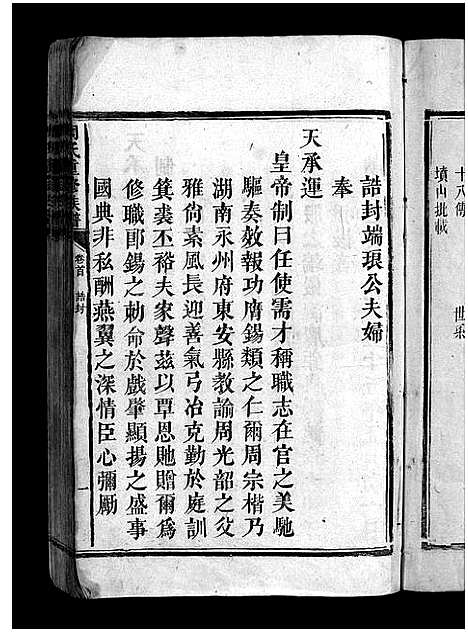 十八傳
墳山批載
世系
誥封端琅公夫婦
奉
天承運
皇帝制曰任使需才稱職志在官之美馳
驅奏效報功膺錫類之仁爾周宗楷乃
湖南永州府東安縣教諭周光韶之父
雅尚素風長迎善氣弓冶克勤於庭訓
箕裘丕裕夫家聲茲以覃恩貤贈爾爲
修職郎錫之勅命於戲肇顯揚之盛事
國典非私酬燕翼之深情臣心彌勵
卷首
誥封
一